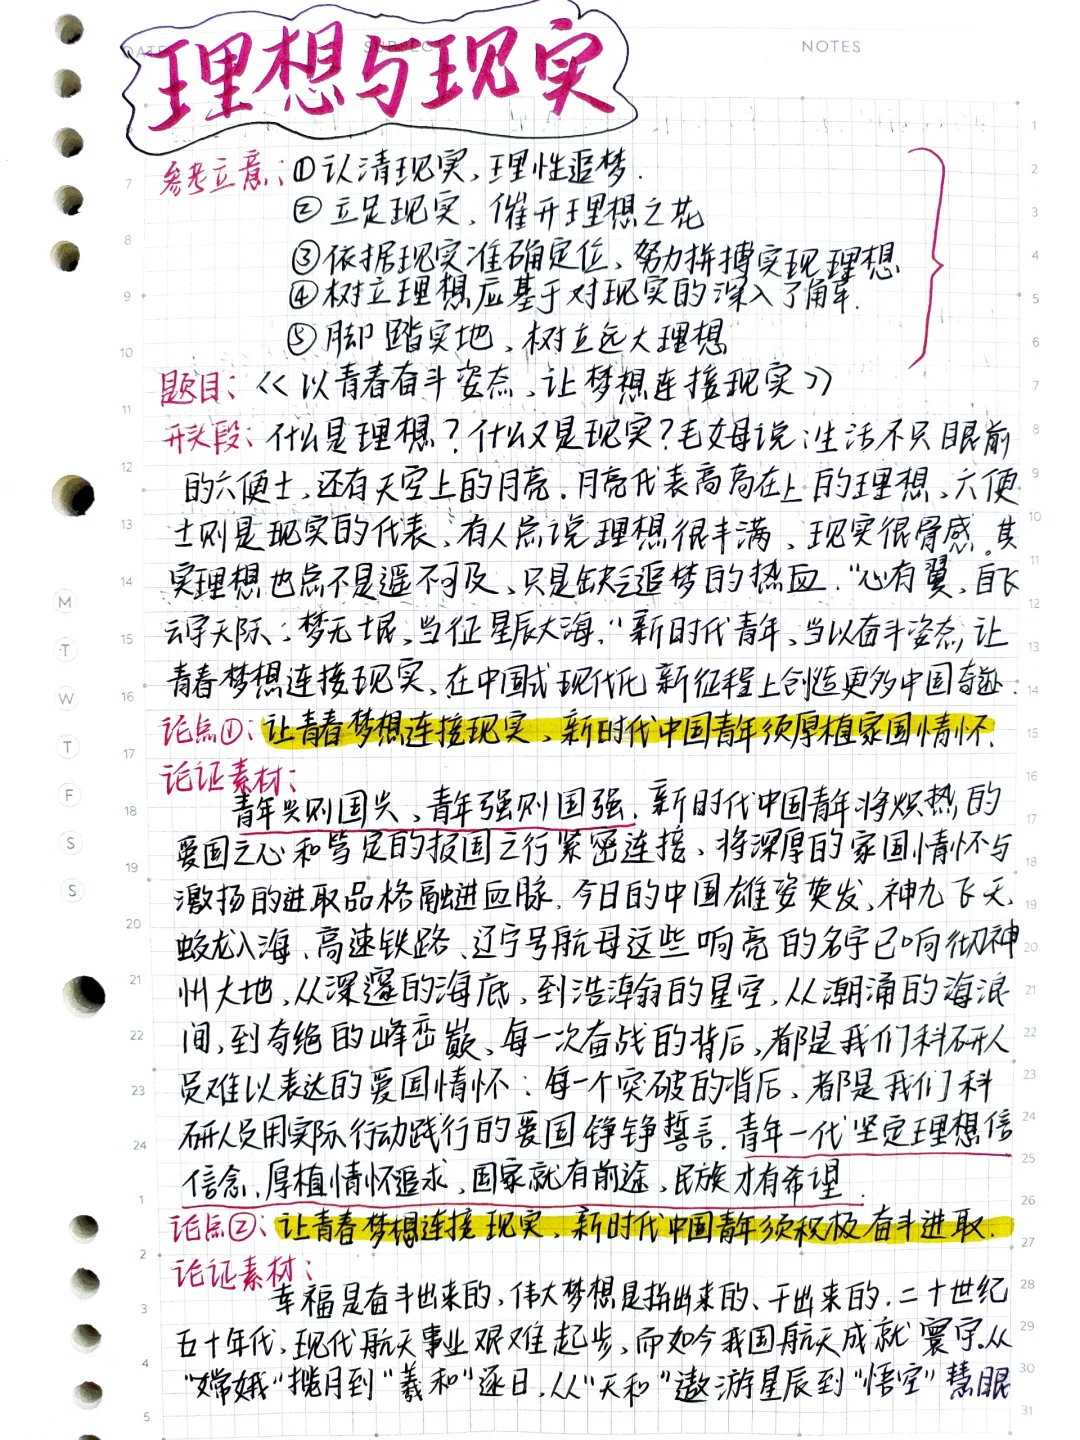 DATE SUBJECT NOTES
理想与现实
参考立意：①认清现实、理性追梦.
②立足现实、催开理想之花
③依据现实准确定位、努力拼搏实现理想
④树立理想应基于对现实的深入了解.
⑤脚踏实地、树立远大理想
题目：《以青春奋斗姿态、让梦想连接现实》
开头段：什么是理想？什么又是现实？毛姆说：生活不只眼前
的六便士，还有天空上的月亮.月亮代表高高在上的理想、六便
士则是现实的代表、有人总说理想很丰满、现实很骨感。其
实理想也总不是遥不可及、只是缺乏追梦的热血."心有翼，自飞
云宇天际；梦无垠，当征星辰大海."新时代青年、当以奋斗姿态，让
青春梦想连接现实、在中国式现代化新征程上创造更多中国奇迹.
论点①：让青春梦想连接现实、新时代中国青年须厚植家国情怀.
论证素材：
青年兴则国兴、青年强则国强.新时代中国青年将炽热的
爱国之心和笃定的报国之行紧密连接、将深厚的家国情怀与
激扬的进取品格融进血脉.今日的中国雄姿英发、神九飞天、
蛟龙入海、高速铁路、辽宁号航母这些响亮的名字已响彻神
州大地，从深邃的海底，到浩瀚的星空，从潮涌的海浪
间，到奇绝的峰峦巅、每一次奋战的背后、都是我们科研人
员难以表达的爱国情怀；每一个突破的背后、都是我们科
研人员用实际行动践行的爱国铮铮誓言.青年一代坚定理想信
信念、厚植情怀追求、国家就有前途，民族才有希望.
论点②：让青春梦想连接现实、新时代中国青年须积极奋斗进取.
论证素材：
幸福是奋斗出来的，伟大梦想是拚出来的、干出来的.二十世纪
五十年代，现代航天事业艰难起步，而如今我国航天成就寰宇.从
"嫦娥"揽月到"羲和"逐日、从"天和"遨游星辰到"悟空"慧眼